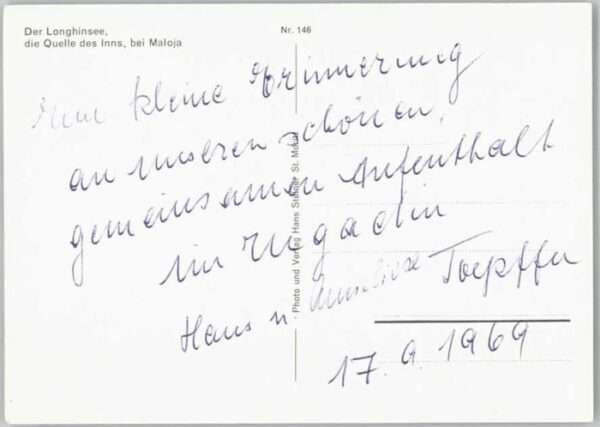 Der Longhinsee,
die Quelle des Inns, bei Maloja
Nr. 146
Eine kleine Erinnerung
an unseren schönen,
gemeinsamen Aufenthalt
im Engadin
Hans u. Anneliese Toepffer
17.9.1969
Photo und Verlag Hans Steiner St. Moritz